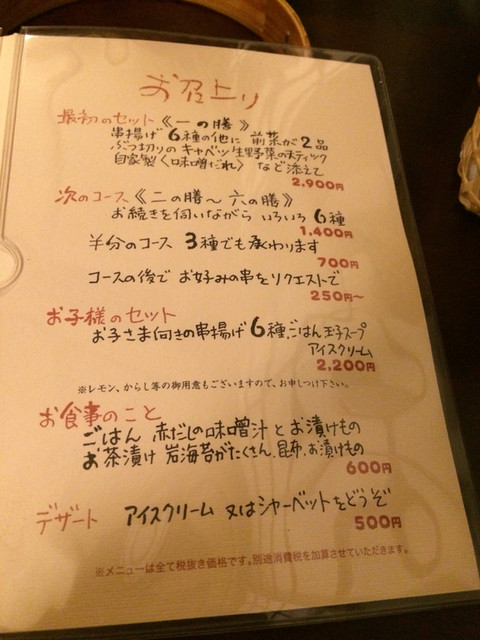 お召上り
最初のセット《一の膳》
串揚げ 6種の他に 前菜が2品
ぶつ切りの キャベツ 生野菜のスティック
自家製〈味噌だれ〉など添えて
2,900円
次のコース《二の膳〜六の膳》
お続きを伺いながら いろいろ 6種
1,400円
半分のコース 3種でも承わります
700円
コースの後で お好みの串をリクエストで
250円〜
お子様のセット
お子さま向きの串揚げ6種、ごはん 玉子スープ
アイスクリーム
2,200円
※レモン、からし等の御用意もございますので、お申しつけ下さい。
お食事のこと
ごはん 赤だしの味噌汁と お漬けもの
お茶漬け 岩海苔がたくさん、昆布、お漬けもの
600円
デザート アイスクリーム 又はシャーベットをどうぞ
500円
※メニューは全て税抜き価格です。別途消費税を加算させていただきます。